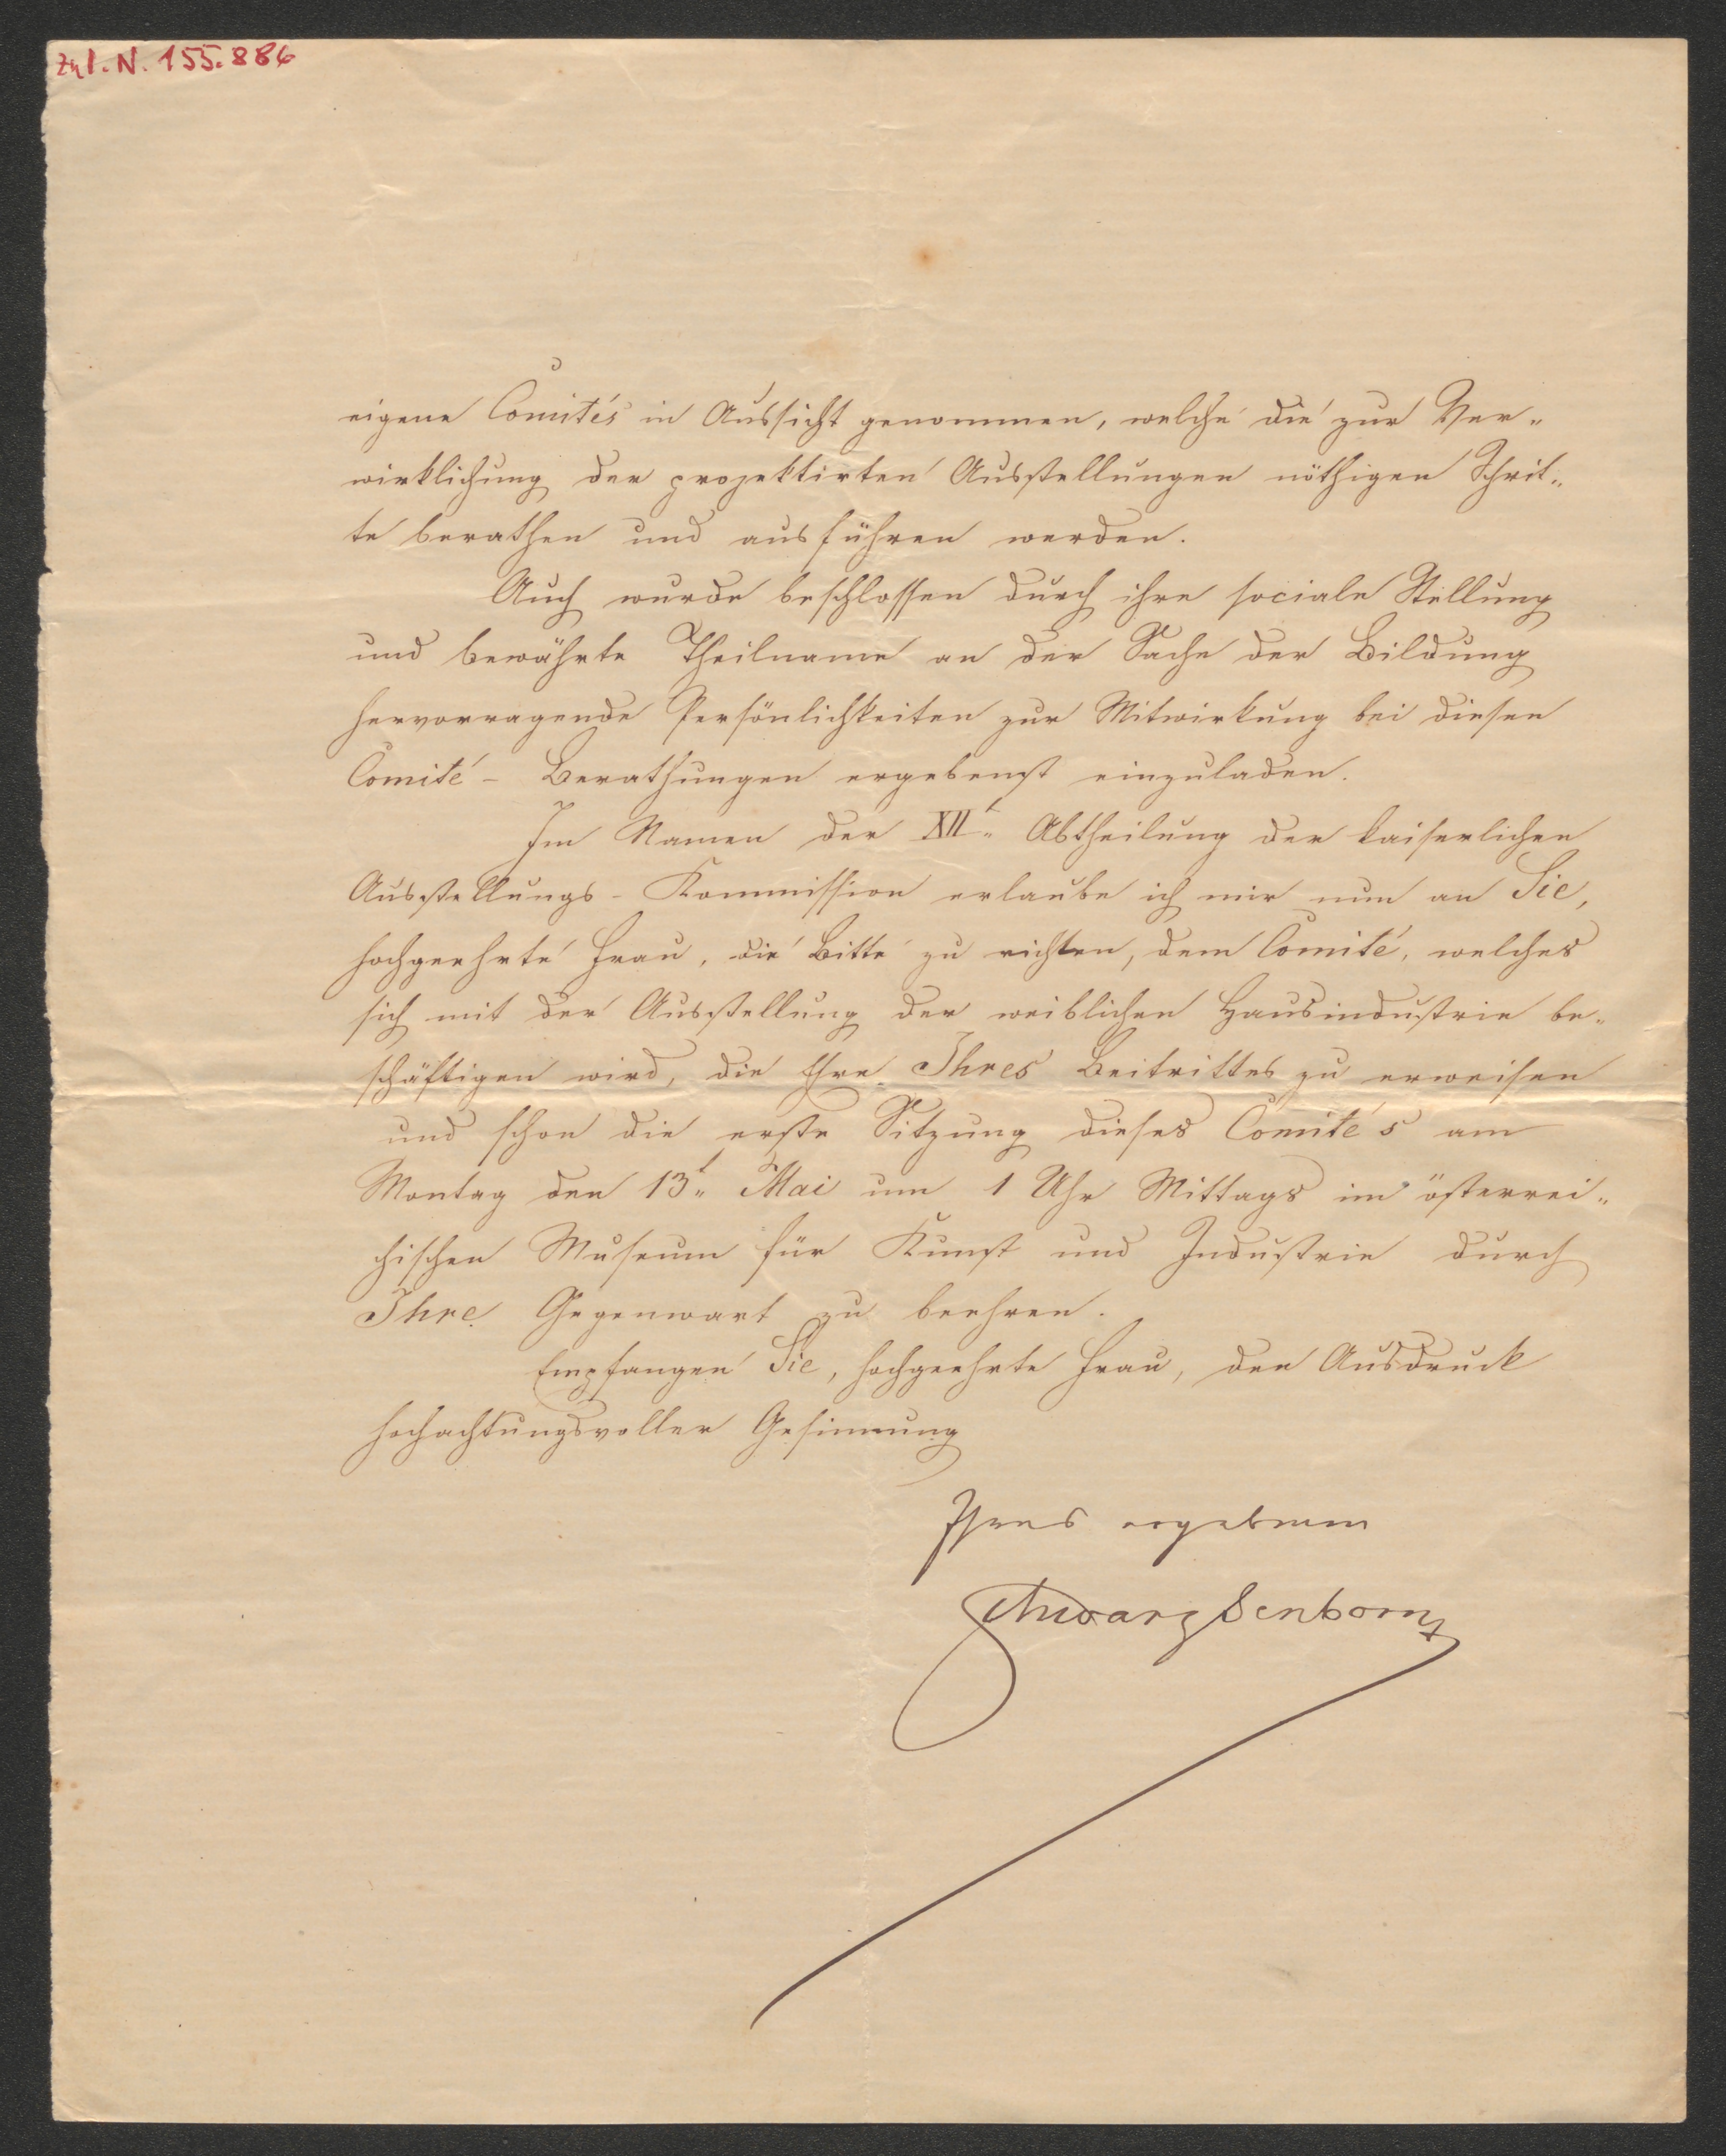 zu I. N. 155.886
eigene Comités in Aussicht genommen, welche die zur Ver„
wirklichung der projektirten Ausstellungen nöthigen Schrit„
te berathen und ausführen werden.
Auch wurde beschlossen durch ihre sociale Stellung
und bewährte Theilname an der Sache der Bildung
hervorragende Persönlichkeiten zur Mitwirkung bei diesen
Comité - Berathungen ergebenst einzuladen.
Im Namen der XII.t Abtheilung der kaiserlichen
Ausstellungs - Kommission erlaube ich mir nun an Sie,
hochgeehrte Frau, die Bitte zu richten, dem Comité, welches
sich mit der Ausstellung der weiblichen Hausindustrie be„
schäftigen wird, die Ehre Ihres Beitrittes zu erweisen
und schon die erste Sitzung dieses Comité's am
Montag den 13.t Mai um 1 Uhr Mittags im österrei„
chischen Museum für Kunst und Industrie durch
Ihre Gegenwart zu beehren.
Empfangen Sie, hochgeehrte Frau, den Ausdruck
hochachtungsvoller Gesinnung
Ihres ergebenen
Schwarz Senborn